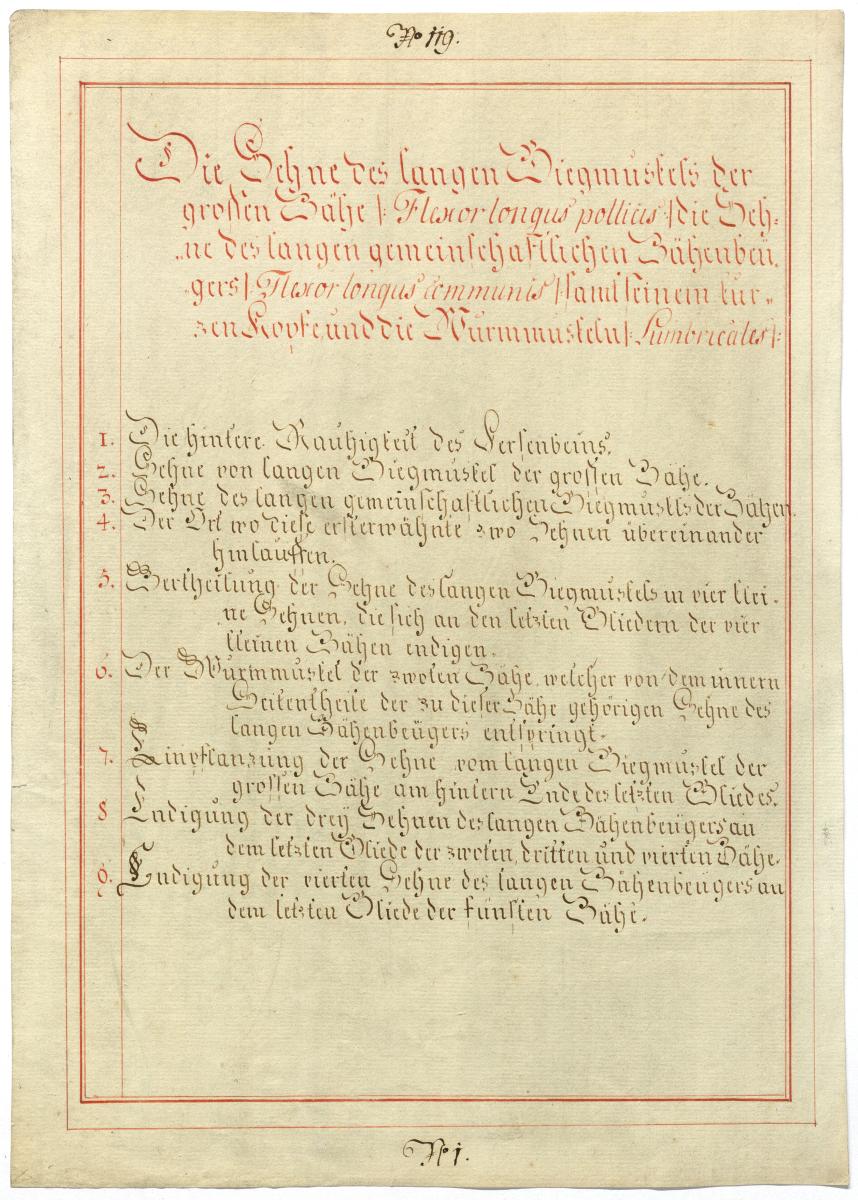 No 119.
Die Sehne des langen Biegmuskels der
großen Zähe /: Flexor longus pollicis :/ die Seh=
ne des langen gemeinschaftlichen Zähenbeü,
gers /: Flexor longus communis :/ samt seinem kur=
zen Kopfe, und die Wurmmuskeln /: Lumbricales :/:
1. Die hintere Rauhigkeit des Fersenbeins.
2. Sehne von langen Biegmuskel der großen Zähe.
3. Sehne des langen gemeinschaftlichen Biegmuskls der Zähen.
4. Der Ort wo diese ersterwähnte zwo Sehnen übereinander
hinlauffen.
5. Vertheilung der Sehne des langen Biegmuskels in vier klei=
ne Sehnen, die sich an den letzten Gliedern der vier
kleinen Zähen endigen.
6. Der Wurmmuskel der zwoten Zähe, welcher von dem innern
Seitentheile der zu dieser Zähe gehörigen Sehne des
langen Zähenbeügers entspringt.
7. Einpflanzung der Sehne vom langen Biegmuskel der
großen Zähe am hintern Ende des letzten Gliedes.
8 Endigung der dreÿ Sehnen des langen Zähenbeügers an
dem letzten Gliede der zwoten, dritten und vierten Zähe.
9. Endigung der vierten Sehne des langen Zähenbeügers an
dem letzten Gliede der fünften Zähe.
No 1.